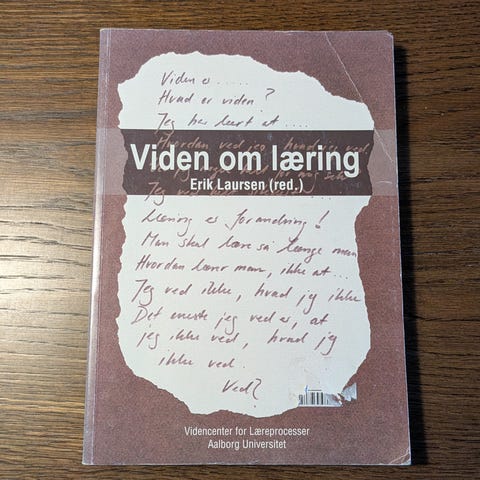 Viden er .....
Hvad er viden?
Jeg har lært at ....
Hvordan ved jeg, hvad jeg ved
Viden om læring
Erik Laursen (red.)
Læring er forandring!
Man skal lære så længe man
Hvordan lærer man, ikke at ...
Jeg ved ikke, hvad jeg ikke
Det eneste jeg ved er, at
jeg ikke ved, hvad jeg
ikke ved.
Ved?
Videncenter for Læreprocesser
Aalborg Universitet